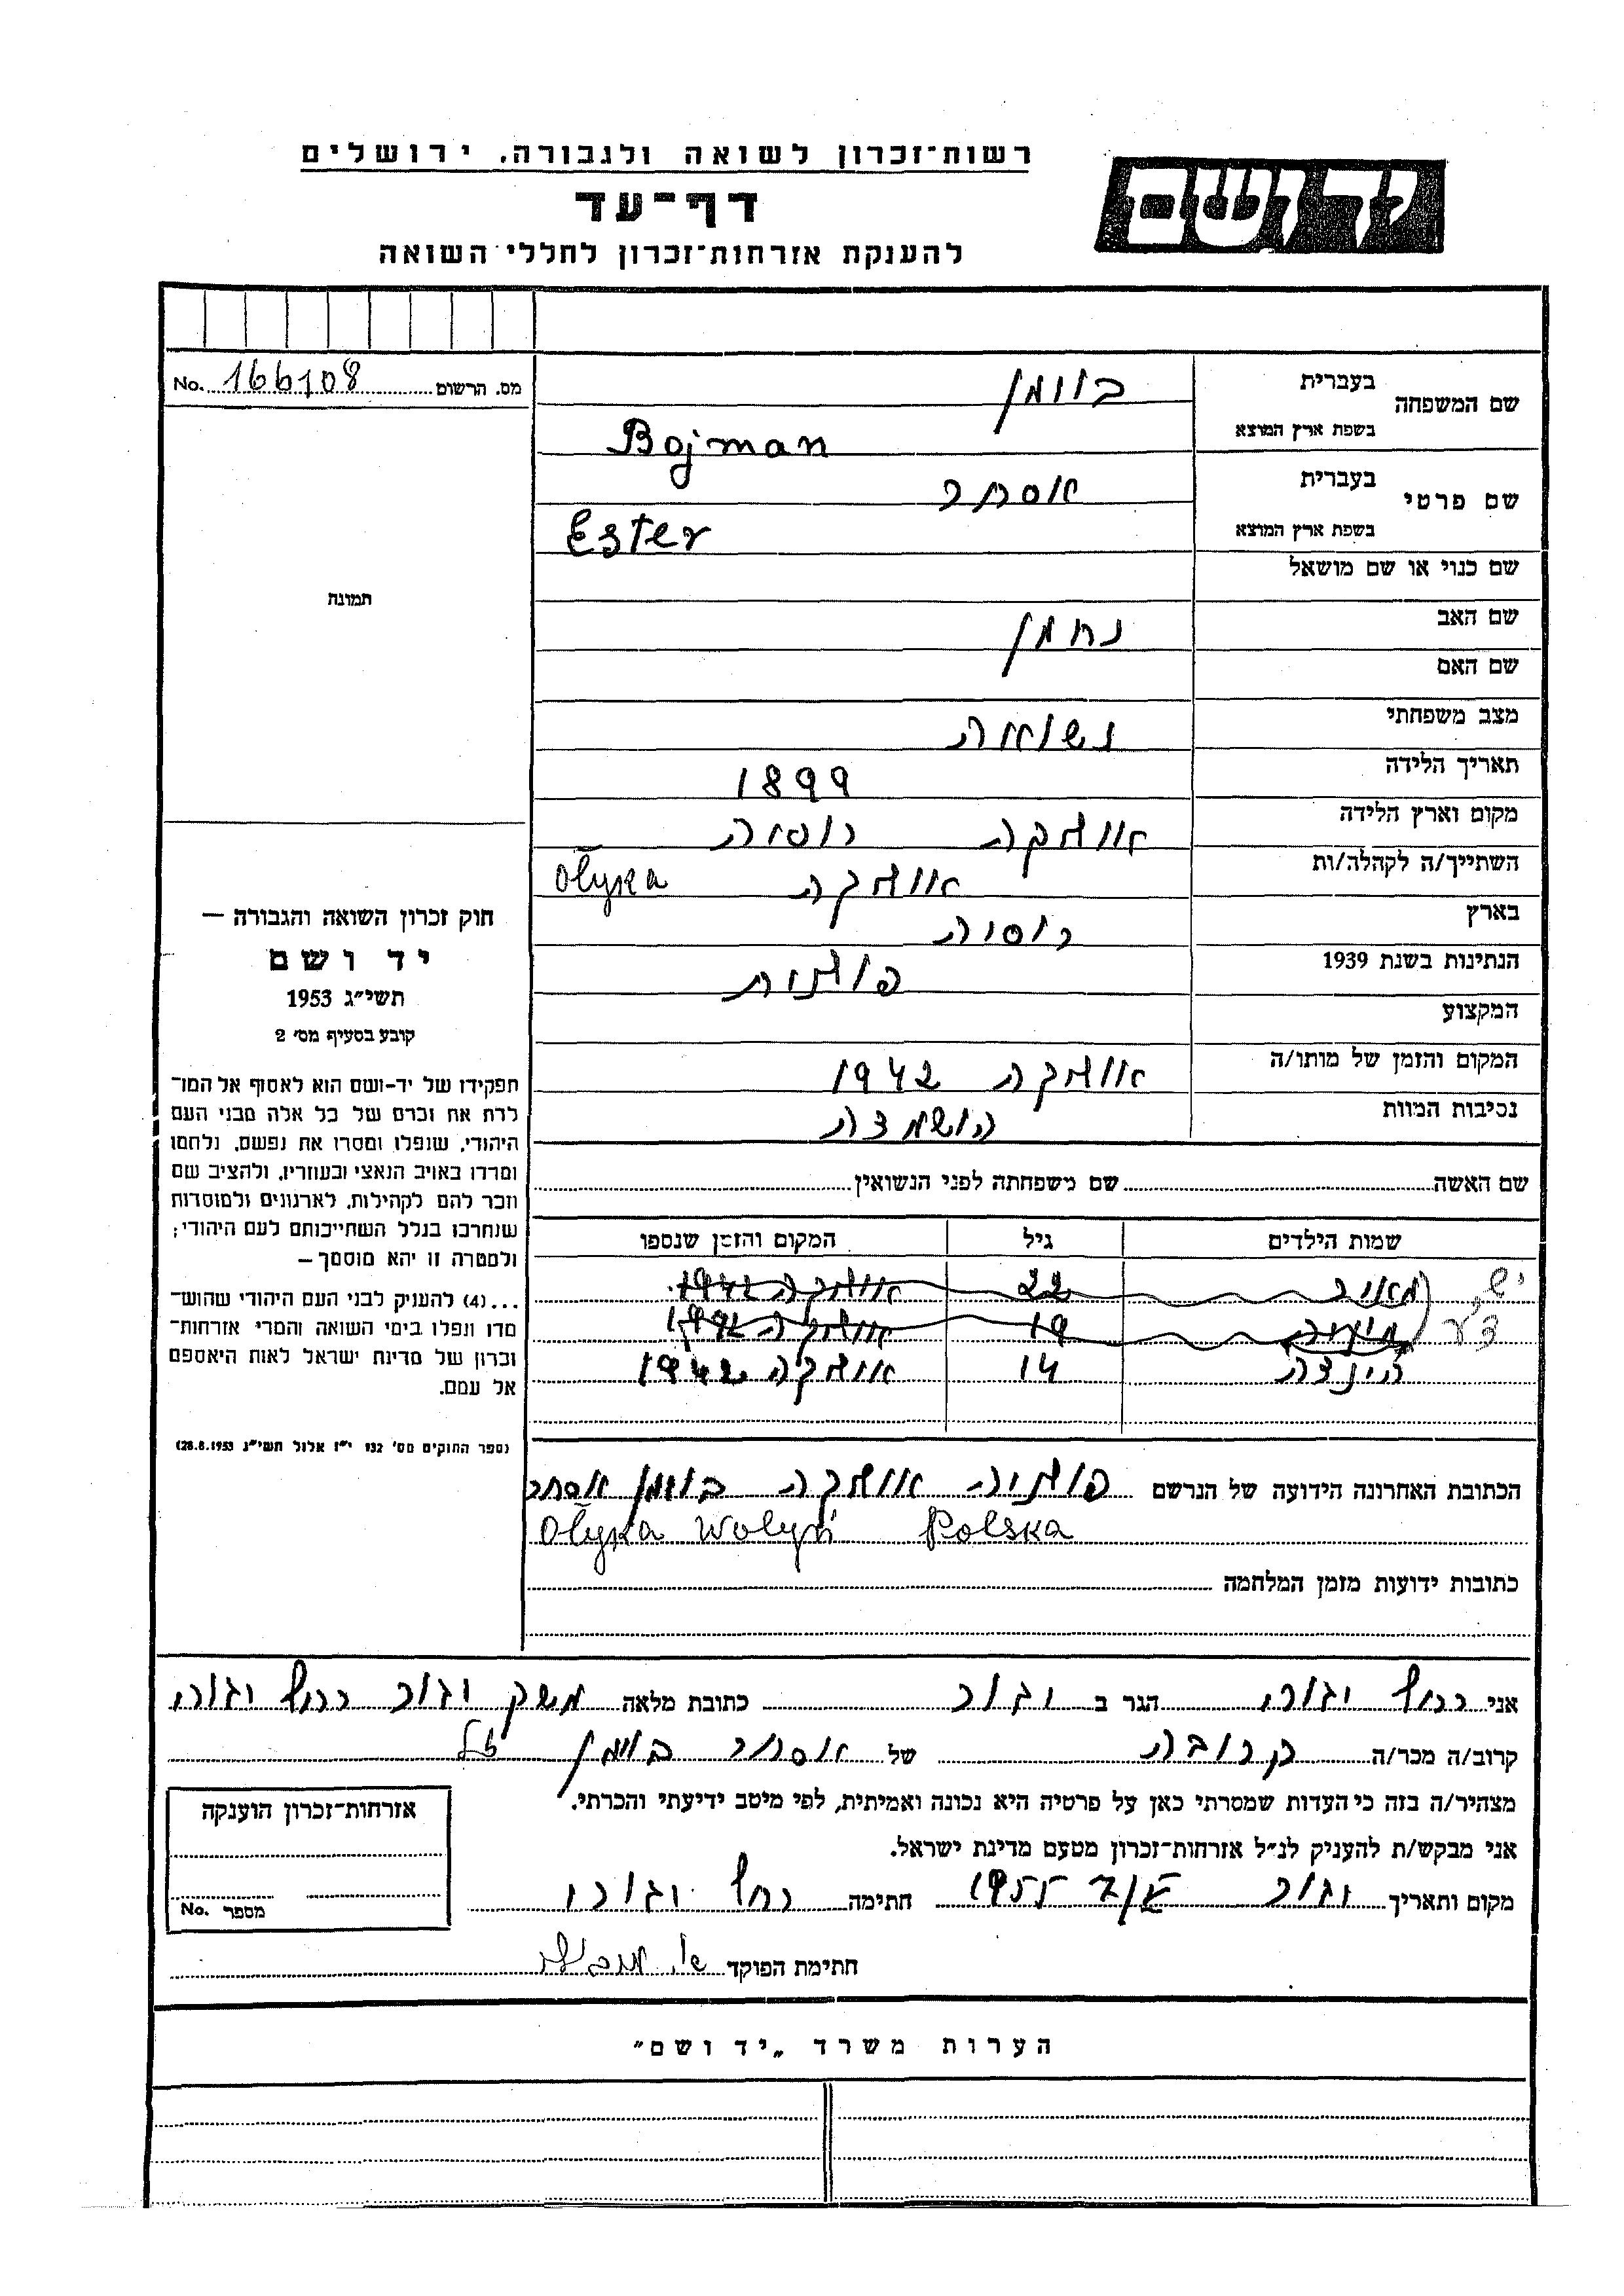 רשות־זכרון לשואה ולגבורה, ירושלים
יד ושם
דף־עד
להענקת אזרחות־זכרון לחללי השואה
מס. הרשום 166108 No.
שם המשפחה
בעברית
בוימן
בשפת ארץ המוצא
Bojman
שם פרטי
בעברית
אסתר
בשפת ארץ המוצא
Ester
שם כנוי או שם מושאל
שם האב נחמן
שם האם
מצב משפחתי נשואה
תאריך הלידה 1899
מקום וארץ הלידה אוליקה רוסיה
השתייך/ה לקהלה/ות אוליקה Ołyka
בארץ רוסיה
הנתינות בשנת 1939 פולנית
המקצוע
המקום והזמן של מותו/ה אוליקה 1942
נסיבות המוות הושמדה
שם האשה שם משפחתה לפני הנשואין
שמות הילדים גיל המקום והזמן שנספו
מאיר 22 אוליקה 1942
19 אוליקה 1942
הינדה 14 אוליקה 1942
יש
ד"ע
הכתובת האחרונה הידועה של הנרשם פולניה אוליקה בוימן אסתר
Ołyka Wołyń Polska
כתובות ידועות מזמן המלחמה
תמונה
חוק זכרון השואה והגבורה —
יד ושם
תשי״ג 1953
קובע בסעיף מס׳ 2
תפקידו של יד־ושם הוא לאסוף אל המו־
לדת את זכרם של כל אלה מבני העם
היהודי, שנפלו ומסרו את נפשם, נלחמו
ומרדו באויב הנאצי ובעוזריו, ולהציב שם
וזכר להם לקהילות, לארגונים ולמוסדות
שנחרבו בגלל השתייכותם לעם היהודי;
ולמטרה זו יהא מוסמך —
...(4) להעניק לבני העם היהודי שהוש־
מדו ונפלו בימי השואה והמרי אזרחות־
זכרון של מדינת ישראל לאות היאספם
אל עמם.
(ספר החוקים מס׳ 132 י״ז אלול תשי״ג 28.8.1953)
אני רחל הגר ב יגור כתובת מלאה משק יגור רחל
קרוב/ה מכר/ה קרובה של אסתר בוימן ז"ל
מצהיר/ה בזה כי העדות שמסרתי כאן על פרטיה היא נכונה ואמיתית, לפי מיטב ידיעתי והכרתי.
אני מבקש/ת להעניק לנ״ל אזרחות־זכרון מטעם מדינת ישראל.
מקום ותאריך יגור 1955 חתימה רחל
חתימת הפוקד
אזרחות־זכרון הוענקה
מספר No.
הערות משרד „יד ושם״